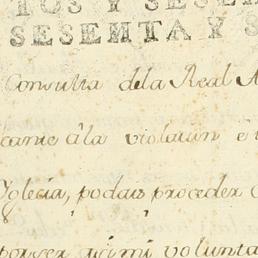 TOS Y SESEN
SESEMTA Y S
Consulta dela Real A
cante âla violaiun e
Yglecia, podais proceder
por ser asi mi volunta